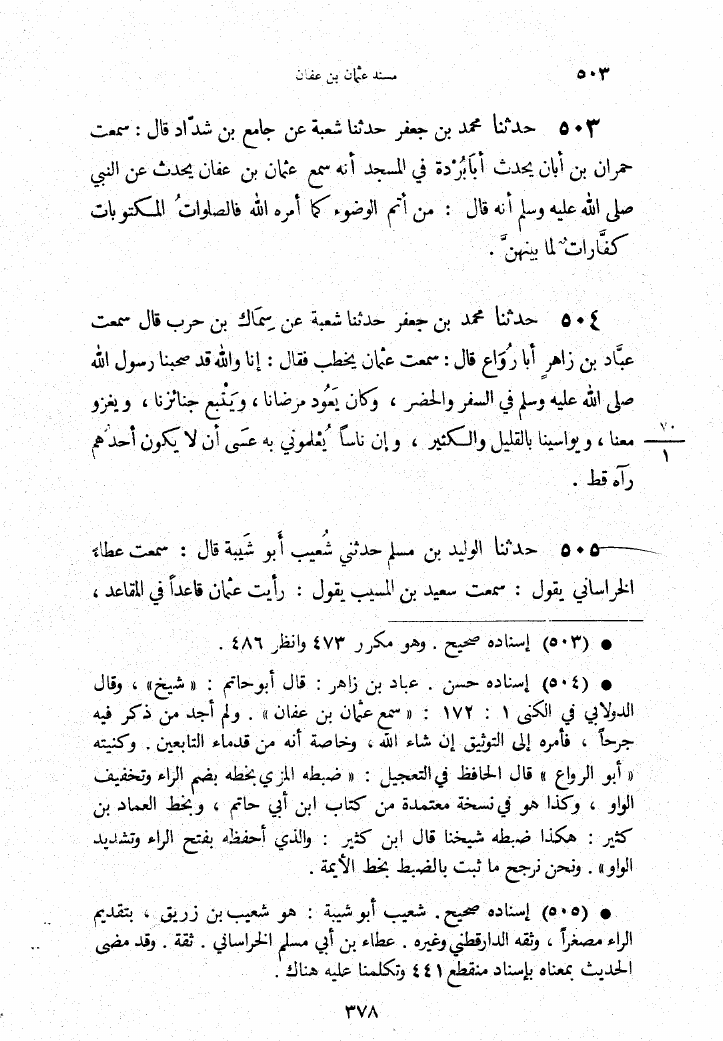 ٥٠٣ مسند عثمان بن عفان
٥٠٣ حدثنا محمد بن جعفر حدثنا شعبة عن جامع بن شدّاد قال : سمعت
حمران بن أبان يحدث أبَا بُرْدة في المسجد أنه سمع عثمان بن عفان يحدث عن النبي
صلى الله عليه وسلم أنه قال : من أتم الوضوء كما أمره الله فالصلواتُ المكتوبات
كفَّاراتٌ لما بينهنَّ .
٥٠٤ حدثنا محمد بن جعفر حدثنا شعبة عن سِمَاك بن حرب قال سمعت
عبَّاد بن زاهرٍ أبا رُوَاع قال : سمعت عثمان يخطب فقال : إنا والله قد صحبنا رسول الله
صلى الله عليه وسلم في السفر والحضر ، وكان يَعُود مرضانا ، ويَتْبع جنائزنا ، ويغزو
معنا ، ويواسينا بالقليل والكثير ، وإن ناساً يُعْلموني به عَسَى أن لا يكون أحدُهم
٧٠
١
رآه قط .
٥٠٥ حدثنا الوليد بن مسلم حدثني شُعيب أَبو شَيبة قال : سمعت عطاءً
الخراساني يقول : سمعت سعيد بن المسيب يقول : رأيت عثمان قاعداً في المقاعد ،
● (٥٠٣) إسناده صحيح . وهو مكرر ٤٧٣ وانظر ٤٨٦ .
● (٥٠٤) إسناده حسن . عباد بن زاهر : قال أبو حاتم : «شيخ» ، وقال
الدولابي في الكنى ١ : ١٧٢ : «سمع عثمان بن عفان» . ولم أجد من ذكر فيه
جرحاً ، فأمره إلى التوثيق إن شاء الله ، وخاصة أنه من قدماء التابعين . وكنيته
«أبو الرواع» قال الحافظ في التعجيل : «ضبطه المزي بخطه بضم الراء وتخفيف
الواو ، وكذا هو في نسخة معتمدة من كتاب ابن أبي حاتم ، وبخط العماد بن
كثير : هكذا ضبطه شيخنا قال ابن كثير : والذي أحفظه بفتح الراء وتشديد
الواو» . ونحن نرجح ما ثبت بالضبط بخط الأيمة .
● (٥٠٥) إسناده صحيح . شعيب أبو شيبة : هو شعيب بن زريق ، بتقديم
الراء مصغراً ، وثقه الدارقطني وغيره . عطاء بن أبي مسلم الخراساني . ثقة . وقد مضى
الحديث بمعناه بإسناد منقطع ٤٤١ وتكلمنا عليه هناك .
٣٧٨